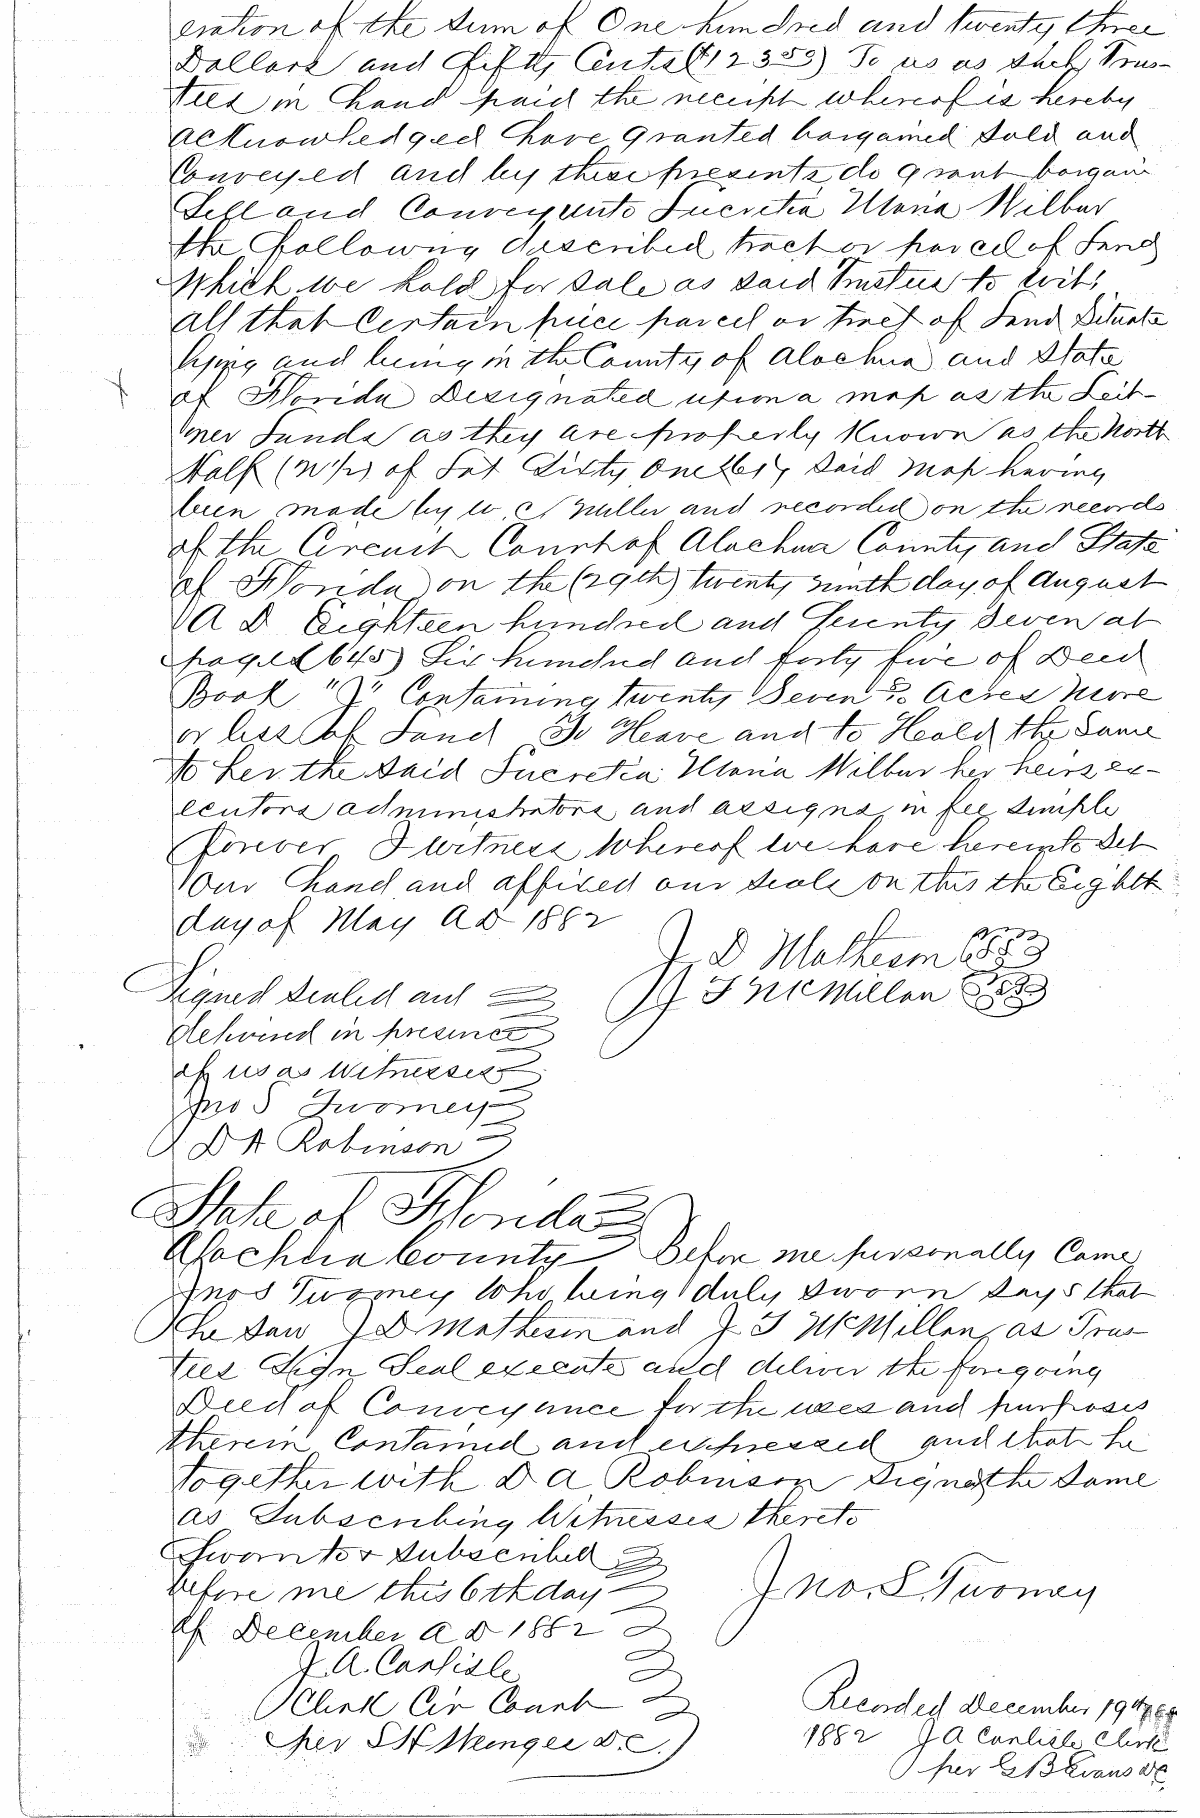 eration of the sum of One hundred and twenty three
Dollars and fifty Cents ($123 50) To us as such Trus-
tees in hand paid the receipt whereof is hereby
acknowledged have granted bargained sold and
Conveyed and by these presents do grant bargain
Sell and Convey unto Lucretia Maria Wilbur
the following described tract or parcel of Land
Which we hold for sale as said Trustees to wit:
all that Certain piece parcel or tract of Land Situate
lying and being in the County of Alachua and State
of Florida Designated upon a map as the Leit-
ner Lands as they are properly Known as the North
Half (N 1/2) of Lot Sixty One (61) said map having
been made by W Miller and recorded on the records
of the Circuit Court of Alachua County and State
of Florida on the (29th) twenty ninth day of August
A D Eighteen hundred and Seventy Seven at
page (645) Six hundred and forty five of Deed
Book "J" Containing twenty Seven Acres More
or less of Land To Heave and to Heold the Same
to her the said Lucretia Maria Wilbur her heirs ex-
ecutors administrators and assigns in fee simple
forever I witness Whereof we have hereinto Set
Our hand and affixed our seals on this the Eighth
day of May A D 1882
J D Matheson
J F McMillan
Signed sealed and
delivered in presence
of us as Witnesses
Jno S Twomey
D A Robinson
State of Florida
Alachua County Before me personally Came
Jno S Twomey Who being duly sworn says that
he saw J D Matheson and J F McMillan as Trus-
tees Sign Seal execute and deliver the foregoing
Deed of Conveyance for the uses and purposes
therein Contained and expressed and that he
together with D A Robinson signed the Same
as Subscribing Witnesses thereto
Sworn to & subscribed
before me this 6th day
of December A D 1882
Jno. S. Twomey
J. A. Carlisle
Clerk Cir Court
per D.C.
Recorded December 19th
1882 J A Carlisle Clerk
per G B Evans DC